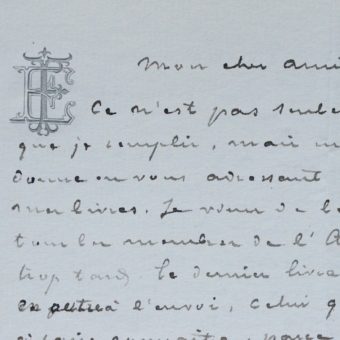 Mon cher ami
Ce n'est pas seule
que je remplir, mais un
donne en vous adressant
mes livres. Je viens de
membre de l'A
trop tard. le dernier livre
à l'envoi, celui q